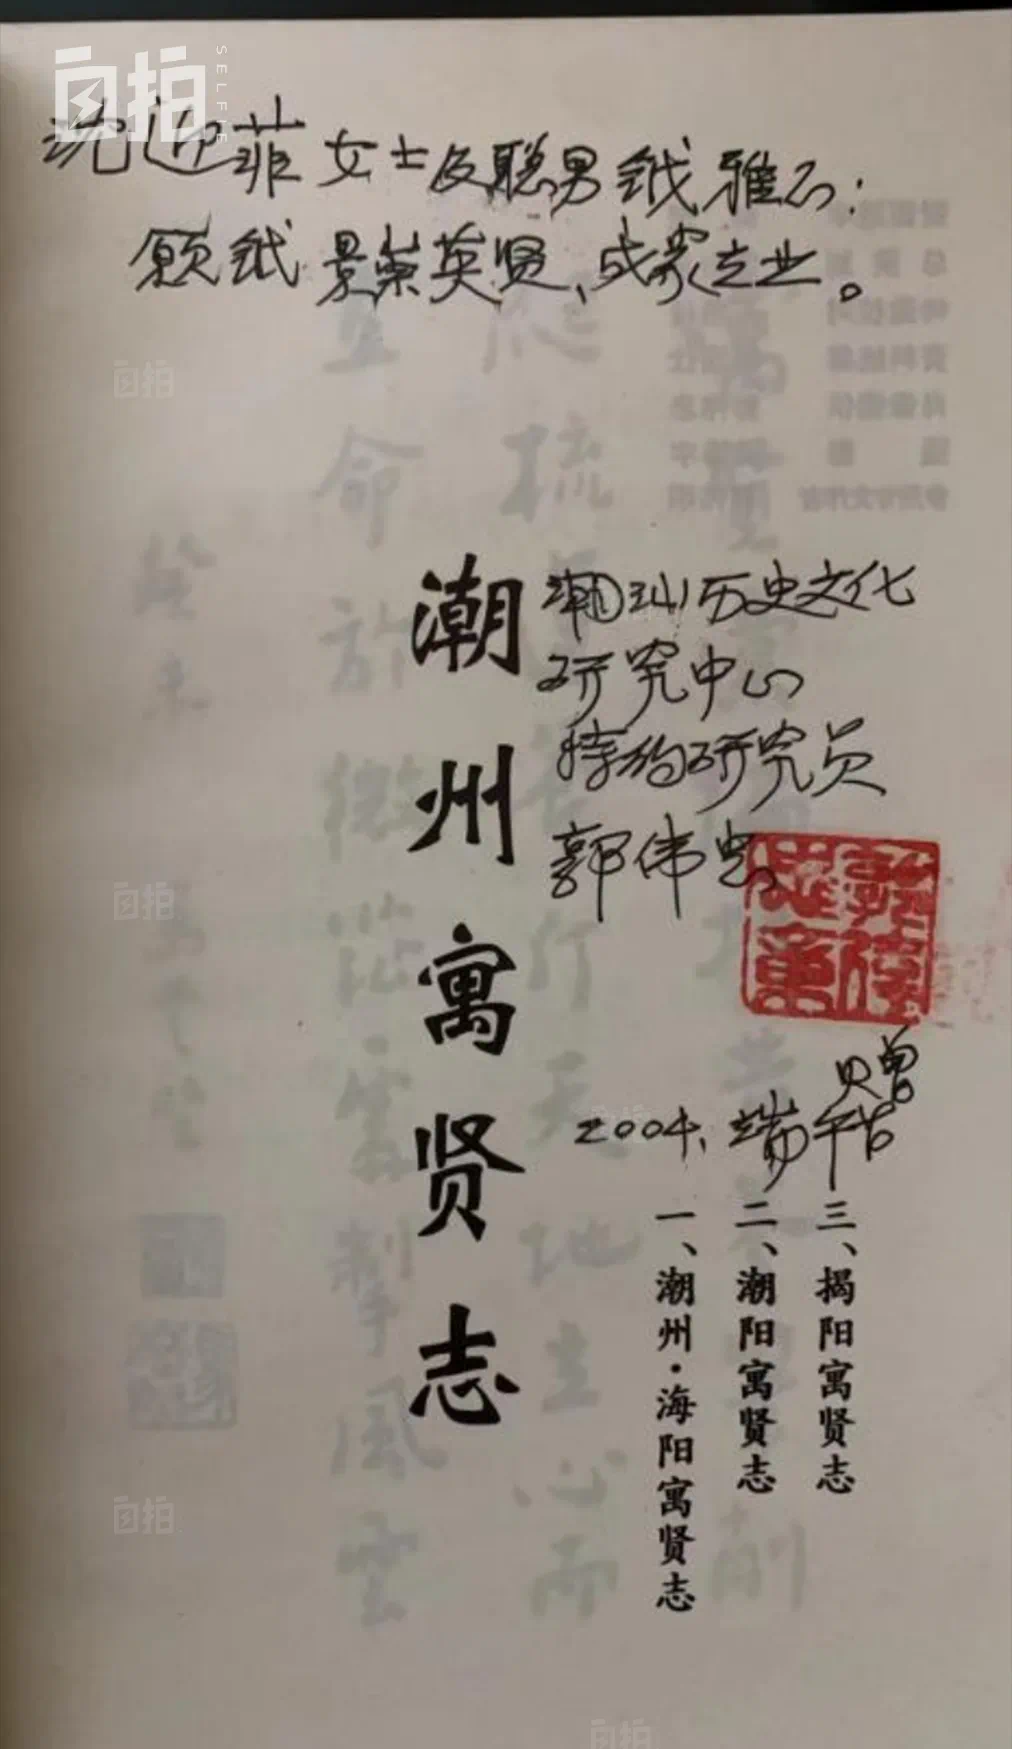 自拍
SELFIE
沈迎菲女士及聪男钺雅正:
愿钺景崇英贤、成家立业。
潮州寓贤志
潮汕历史文化
研究中心
特约研究员
郭伟忠
赠
2004、端午节
一、潮州·海阳寓贤志
二、潮阳寓贤志
三、揭阳寓贤志